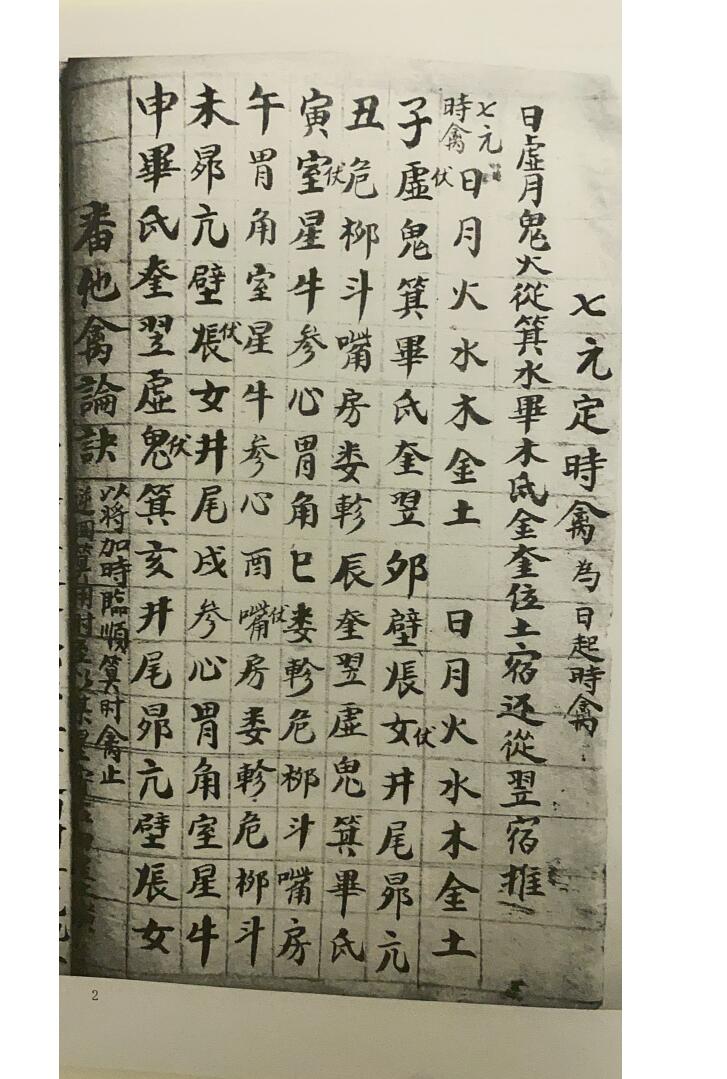 七元定時禽 為日起時禽
日虛月鬼火從箕水畢木氐金奎位土宿还從翌宿推
七元時禽 日月火水木金土 日月火水木金土
子虛伏鬼箕畢氐奎翌卯壁張女伏井尾昴亢
丑危柳斗嘴房娄軫辰奎翌虛鬼箕畢氐
寅室伏星牛参心胃角巳娄軫危柳斗嘴房
午胃角室星牛参心酉嘴伏房娄軫危柳斗
未昴亢壁張伏女井尾戌参心胃角室星牛
申畢氐奎翌虛鬼伏箕亥井尾昴亢壁張女
番他禽論訣 以将加時臨順算时禽止
2